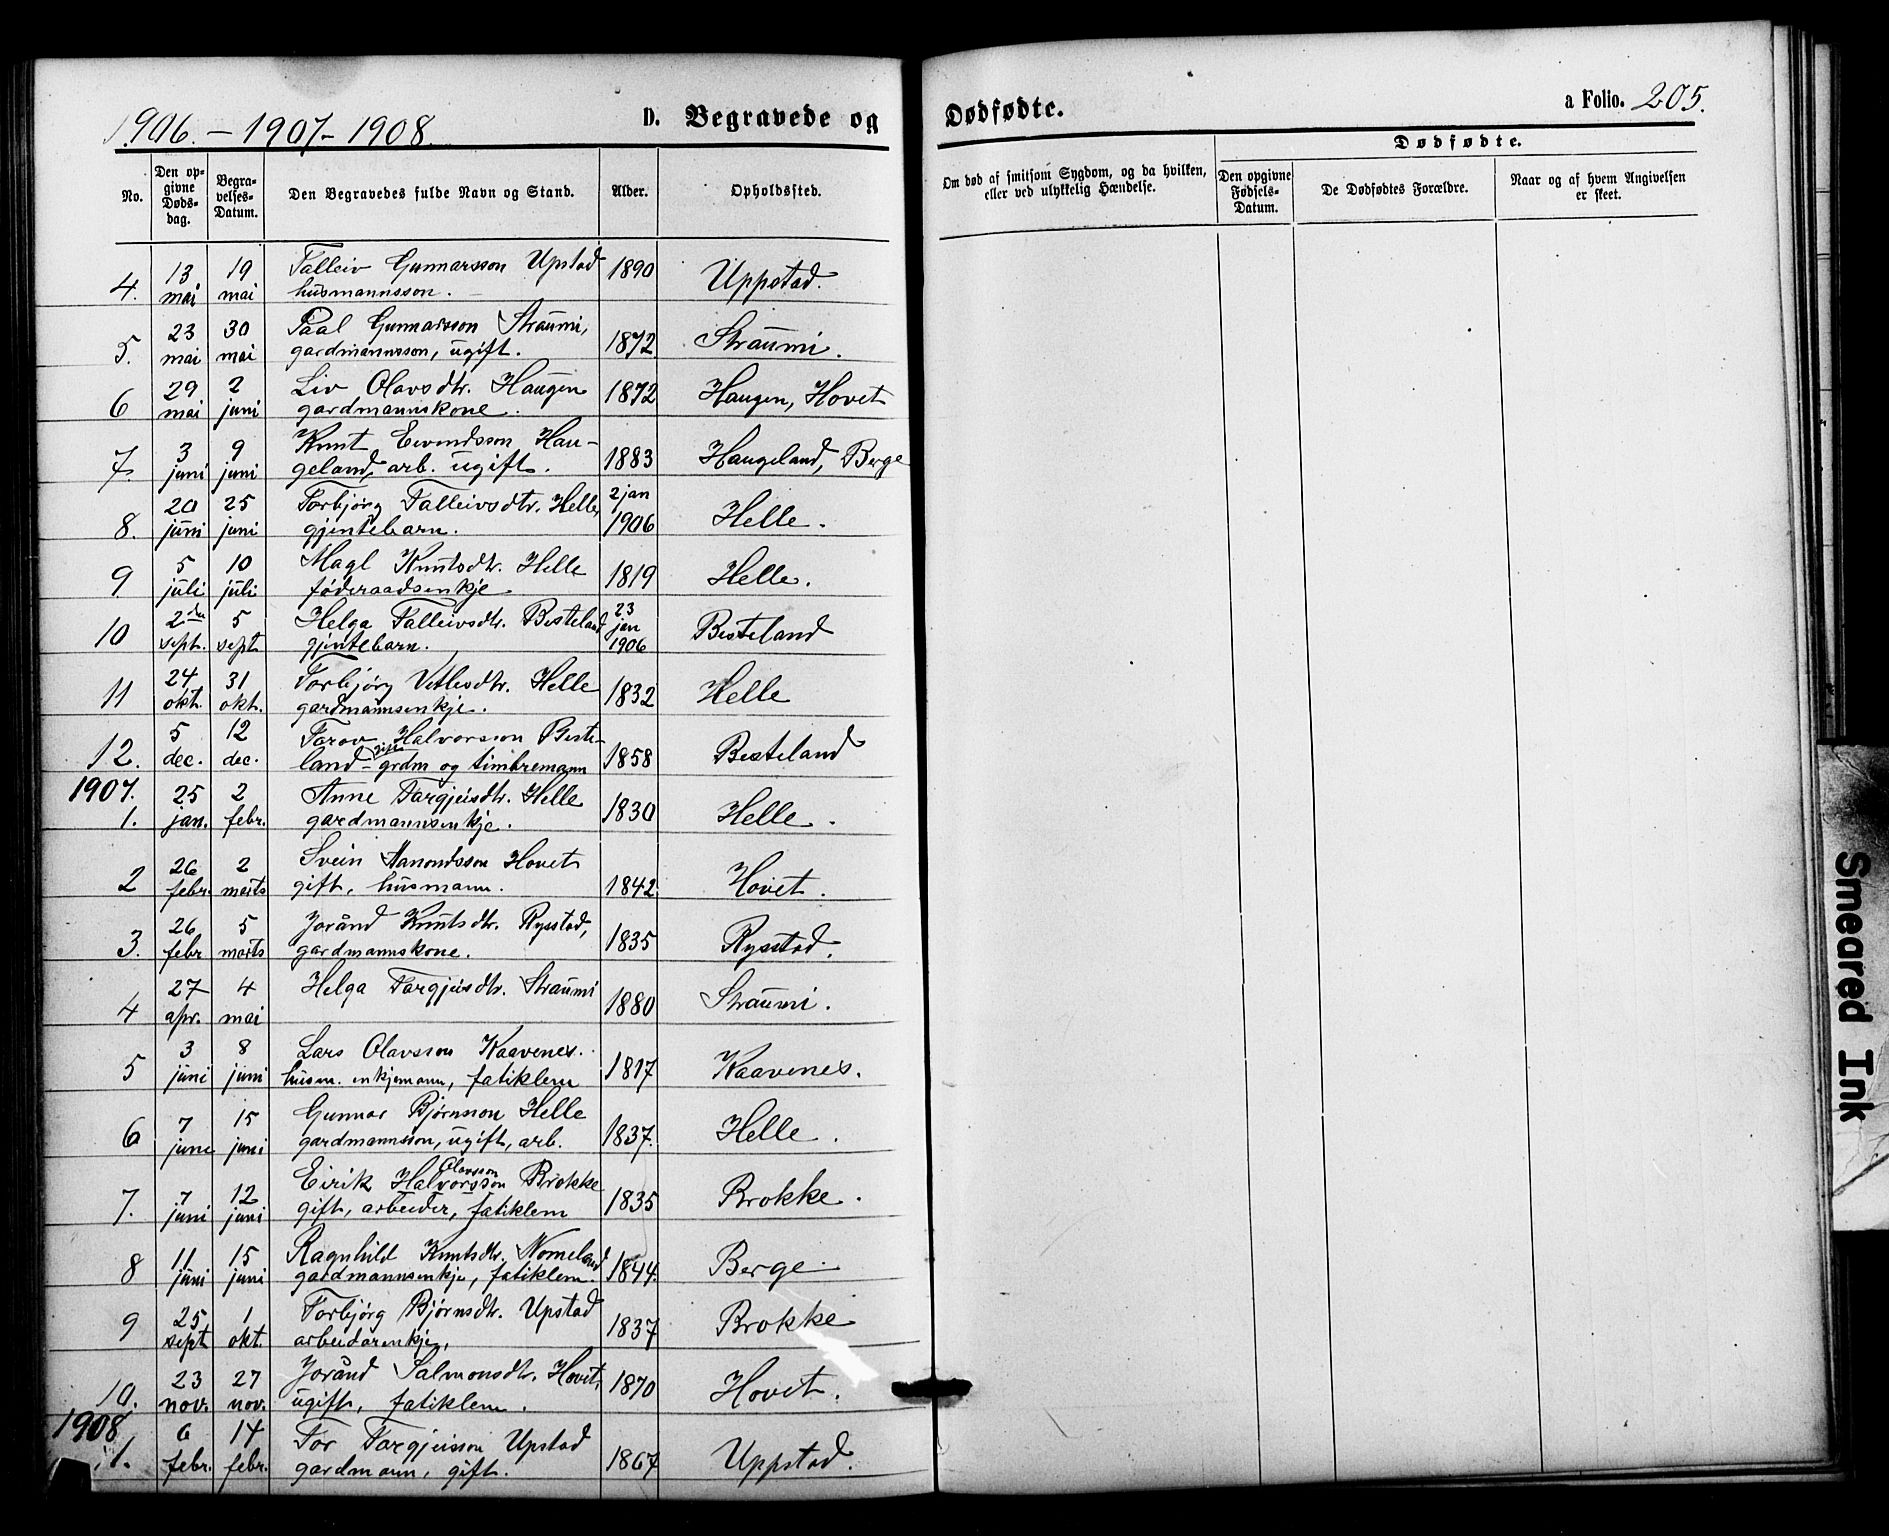 1906. – 1907 – 1908.
D. Begravede og
Dødfødte.
a Folio. 205.
No.
Den op-
givne
Døds-
dag.
Begra-
velses-
Datum.
Den Begravedes fulde Navn og Stand.
Alder.
Opholdssted.
Om død af smitsom Sygdom, og da hvilken,
eller ved ulykkelig Hændelse.
Dødfødte.
Den opgivne
Fødsels-
Datum.
De Dødfødtes Forældre.
Naar og af hvem Angivelsen
er skeet.
13 19 Talleiv Gunnarsson Upstad 1890 Uppstad.
4. mai mai husmannsson.
23 30 Paal Gunnarsson Straumi,
5. mai mai gardmannsson, ugift. 1872 Straumi.
29 2 Liv Olavsdtr. Haugen 1872 Haugen, Hovet
6 mai juni gardmannskone.
3 9 Knut Eivindsson Hau-
7. juni juni geland, arb. ugift. 1883 Haugeland, Berge
20 25 Torbjørg Talleivsdtr. Helle, 2 jan
8. juni juni gjentebarn. 1906 Helle.
5 10 Magl Knutsdtr. Helle
9. juli juli føderaadsenkje 1819 Helle.
2den 5 Helga Talleivsdtr. Besteland 23 jan
10 sept. sept gjentebarn. 1906 Besteland
24 31 Torbjørg Vetlesdtr. Helle
11 okt. okt. gardmannsenkje. 1832 Helle
5 12 Tarov Halvorsson Beste-
gift
12. dec. dec. land – grdm og timbremann 1858 Besteland
1907. 25 2 Anne Targjeisdtr. Helle
1. jan. febr. gardmannsenkje. 1830 Helle.
26 2 Svein Aamondsson Hovet
2 febr. marts gift, husmann. 1842 Hovet.
26 5 Joränd Knutsdtr. Rysstad,
3. febr marts gardmannskone. 1835 Rysstad.
27 4 Helga Targjeisdtr. Straumi
4 apr. mai 1880 Straumi.
3 8 Lars Olavsson Kaavenes.
5 juni juni husm. enkjemann, fatiklem 1817 Kaavenes.
7 15 Gunnar Bjørnsson Helle
6 june juni gardmannsson, ugift, arb. 1837. Helle.
Olavsson
7 12 Eirik Halvorsson Brokke
7. juni juni gift, arbeider, fatiklem 1835 Brokke.
11 15 Ragnhild Knutsdtr. Nomeland
8 juni juni gardmannsenkje, fatiklem. 1844. Berge.
25 1 Torbjørg Bjørnsdtr. Upstad
9 sept okt. arbeidarenkje, 1837 Brokke
23 27 Joränd Salmonsdtr. Hovet,
10. nov. nov. ugift, fatiklem. 1870 Hovet.
1908 6 14 Tor Targjeisson Upstad
1. febr. febr. gardmann, gift. 1867 Uppstad.
Smeared Ink